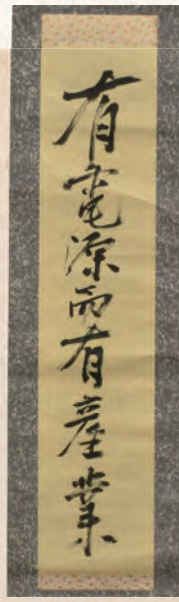 有電源而有産業